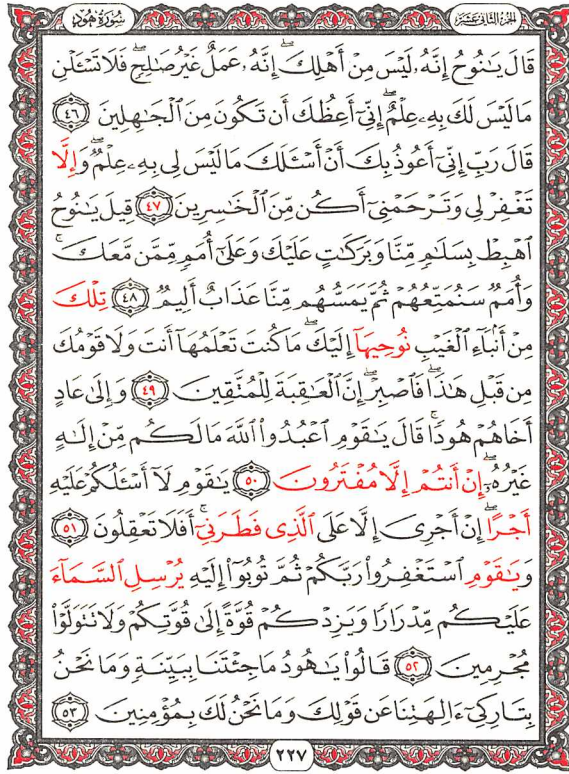 سُورَةُ هُودٍ الجزء الثاني عشر
قَالَ يَٰنُوحُ إِنَّهُۥ لَيْسَ مِنْ أَهْلِكَۖ إِنَّهُۥ عَمَلٌ غَيْرُ صَٰلِحٖۖ فَلَا تَسْـَٔلْنِ
مَا لَيْسَ لَكَ بِهِۦ عِلْمٌۖ إِنِّيٓ أَعِظُكَ أَن تَكُونَ مِنَ ٱلْجَٰهِلِينَ ٤٦
قَالَ رَبِّ إِنِّيٓ أَعُوذُ بِكَ أَنْ أَسْـَٔلَكَ مَا لَيْسَ لِي بِهِۦ عِلْمٌۖ وَإِلَّا
تَغْفِرْ لِي وَتَرْحَمْنِيٓ أَكُن مِّنَ ٱلْخَٰسِرِينَ ٤٧ قِيلَ يَٰنُوحُ
ٱهْبِطْ بِسَلَٰمٖ مِّنَّا وَبَرَكَٰتٍ عَلَيْكَ وَعَلَىٰٓ أُمَمٖ مِّمَّن مَّعَكَۚ
وَأُمَمٌ سَنُمَتِّعُهُمْ ثُمَّ يَمَسُّهُم مِّنَّا عَذَابٌ أَلِيمٌ ٤٨ تِلْكَ
مِنْ أَنۢبَآءِ ٱلْغَيْبِ نُوحِيهَآ إِلَيْكَۖ مَا كُنتَ تَعْلَمُهَآ أَنتَ وَلَا قَوْمُكَ
مِن قَبْلِ هَٰذَاۖ فَٱصْبِرْۖ إِنَّ ٱلْعَٰقِبَةَ لِلْمُتَّقِينَ ٤٩ وَإِلَىٰ عَادٍ
أَخَاهُمْ هُودٗاۚ قَالَ يَٰقَوْمِ ٱعْبُدُوا۟ ٱللَّهَ مَا لَكُم مِّنْ إِلَٰهٍ
غَيْرُهُۥٓۖ إِنْ أَنتُمْ إِلَّا مُفْتَرُونَ ٥٠ يَٰقَوْمِ لَآ أَسْـَٔلُكُمْ عَلَيْهِ
أَجْرًاۖ إِنْ أَجْرِيَ إِلَّا عَلَى ٱلَّذِي فَطَرَنِيٓۚ أَفَلَا تَعْقِلُونَ ٥١
وَيَٰقَوْمِ ٱسْتَغْفِرُوا۟ رَبَّكُمْ ثُمَّ تُوبُوٓا۟ إِلَيْهِ يُرْسِلِ ٱلسَّمَآءَ
عَلَيْكُم مِّدْرَارٗا وَيَزِدْكُمْ قُوَّةً إِلَىٰ قُوَّتِكُمْ وَلَا تَتَوَلَّوْا۟
مُجْرِمِينَ ٥٢ قَالُوا۟ يَٰهُودُ مَا جِئْتَنَا بِبَيِّنَةٖ وَمَا نَحْنُ
بِتَارِكِيٓ ءَالِهَتِنَا عَن قَوْلِكَ وَمَا نَحْنُ لَكَ بِمُؤْمِنِينَ ٥٣
٢٢٧